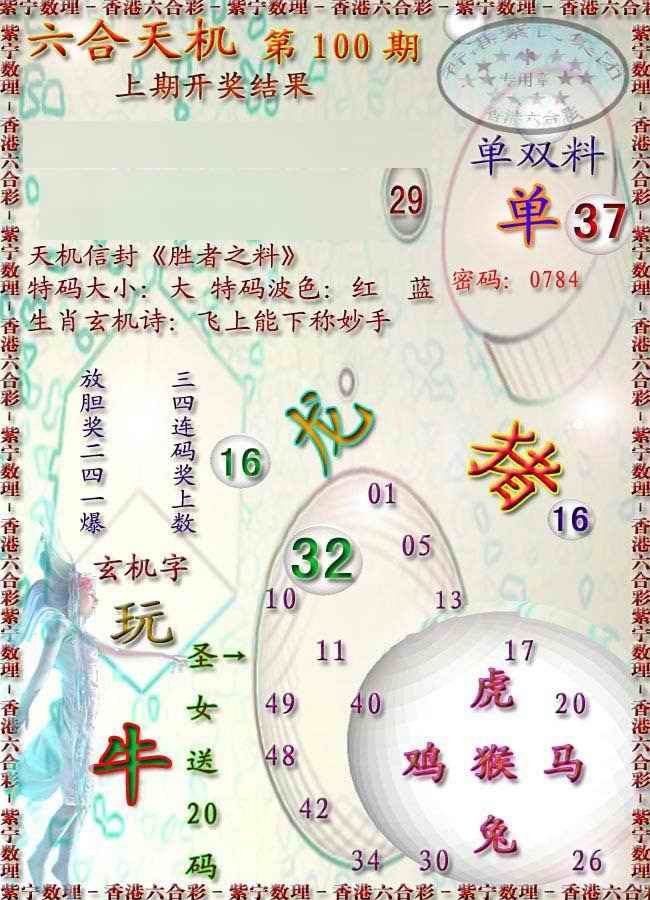 紫宁数理－香港六合彩－紫宁数理－香港六合彩－紫宁数理－香港六合彩－紫宁数理
六合天机 第 100 期
上期开奖结果
专用章
香港六合彩
单双料
29
单 37
天机信封《胜者之料》
特码大小：大 特码波色：红 蓝
密码：0784
生肖玄机诗：飞上能下称妙手
放胆奖二四一爆
三四连码奖上数
16
龙
猪
16
01
32
05
玄机字
10
13
玩
圣女送20码
→
11
17
49
40
虎
20
牛
48
鸡 猴 马
42
兔
34
30
26
紫宁数理－香港六合彩－紫宁数理－香港六合彩－紫宁数理－香港六合彩－紫宁数理